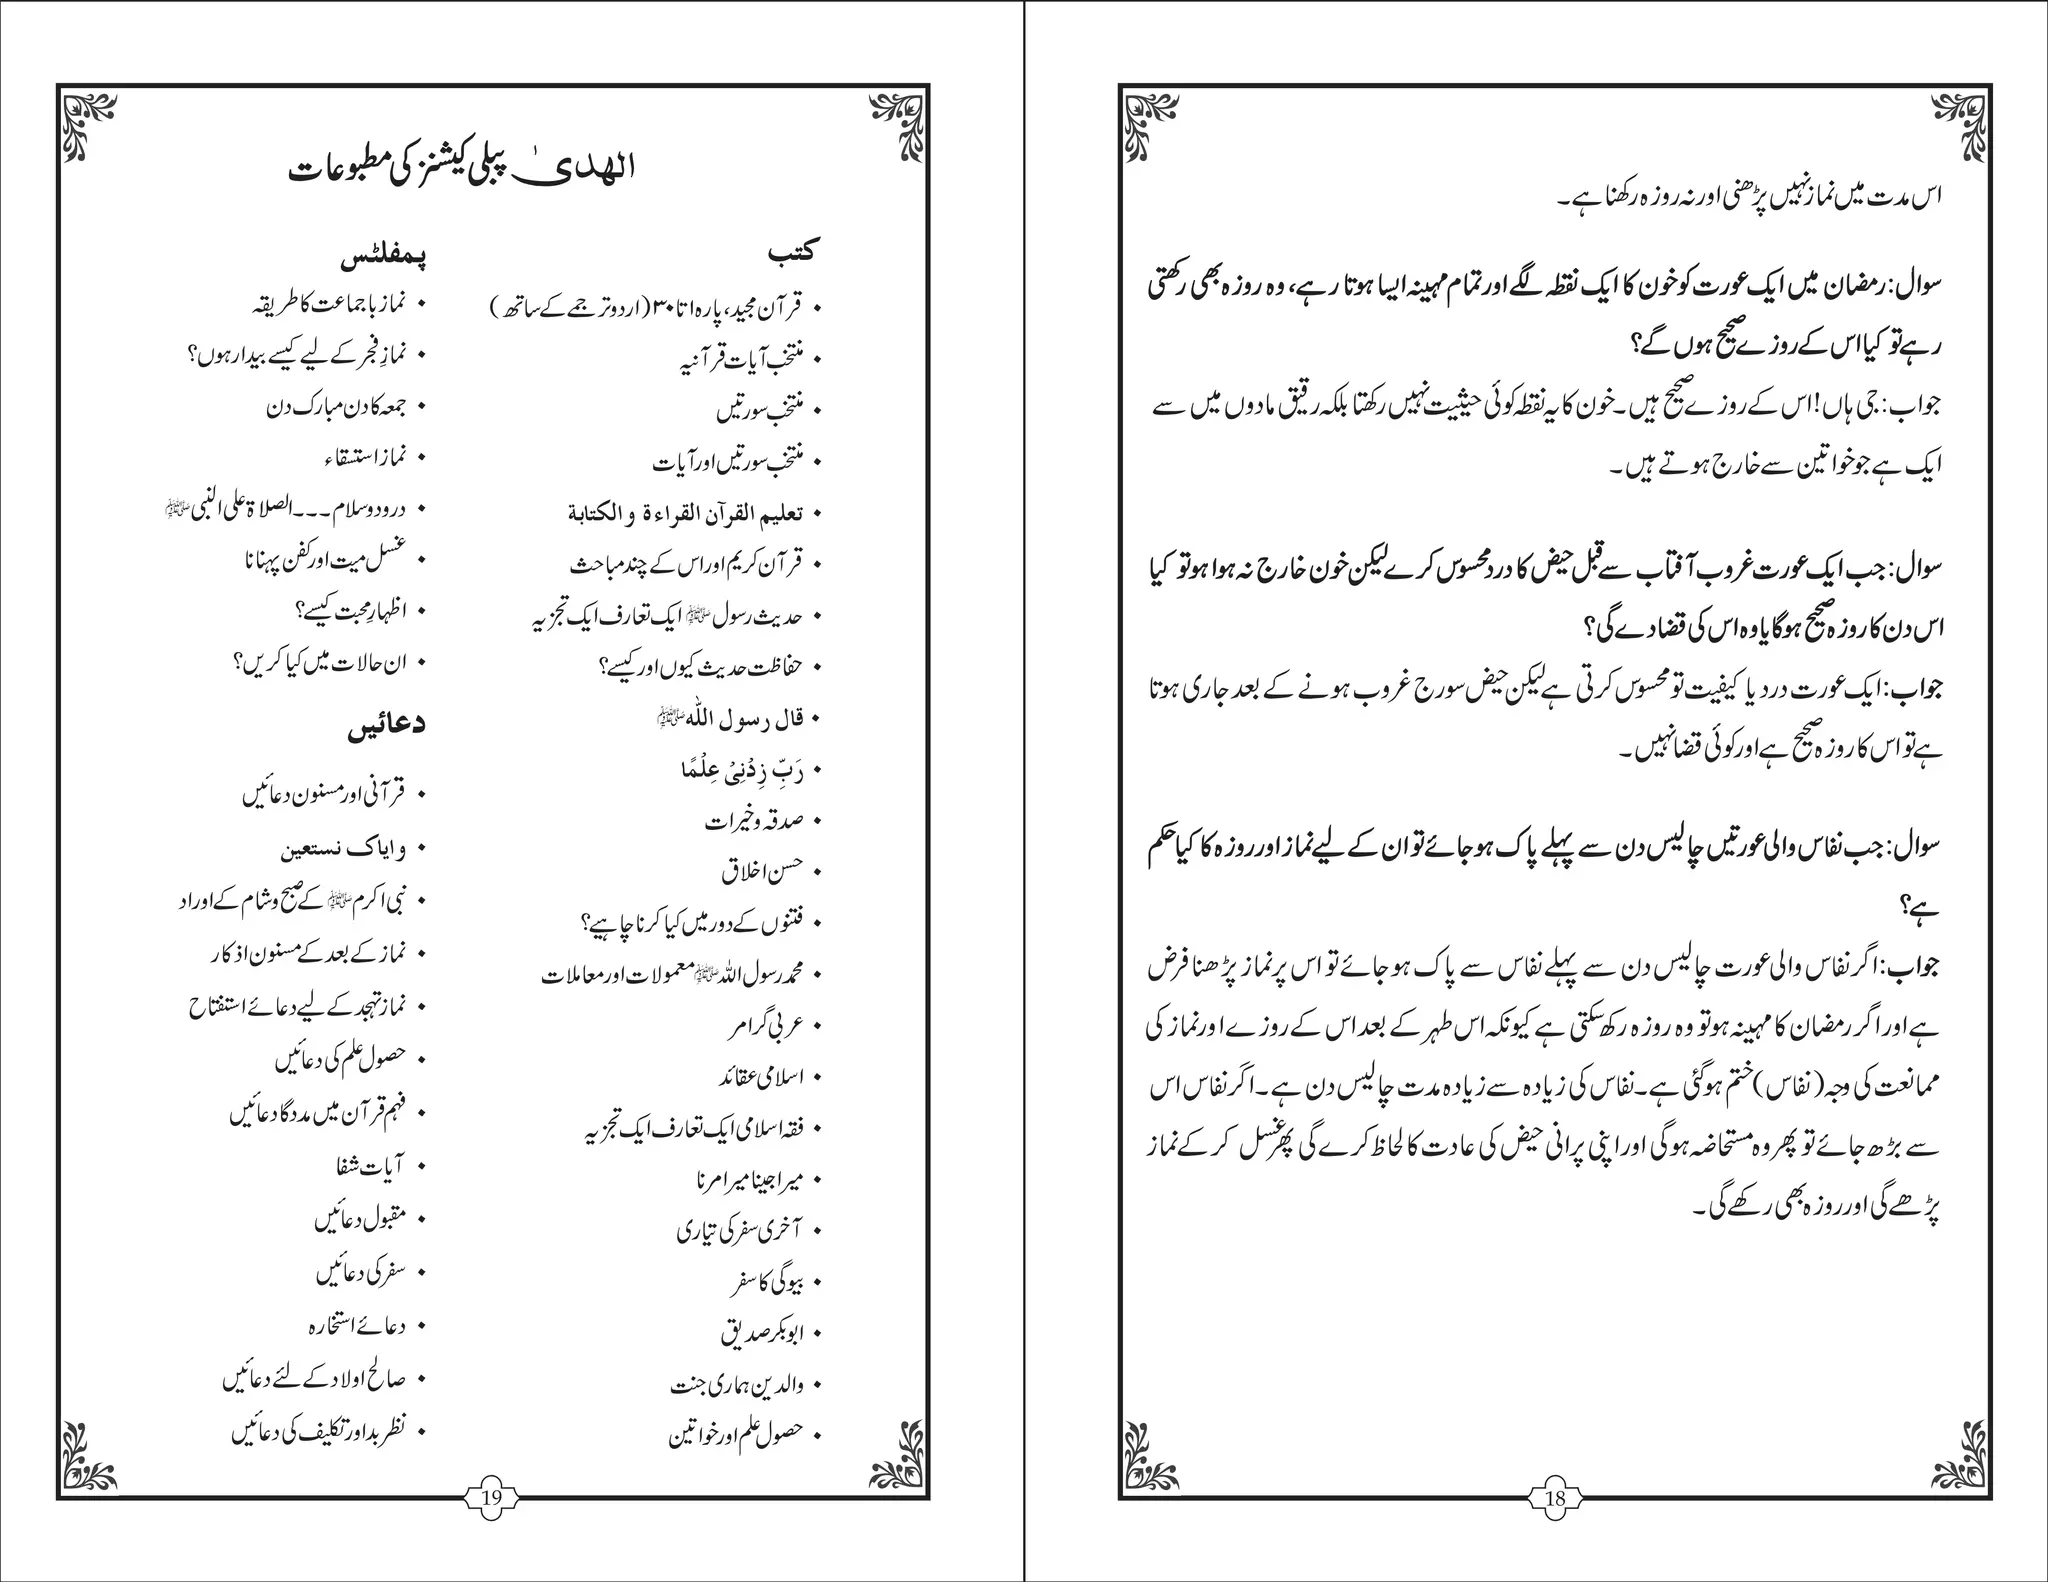 اس مدت میں نماز نہیں پڑھنی اور نہ روزہ رکھنا ہے۔
سوال: رمضان میں ایک عورت کو خون کا ایک نقطہ لگے اور تمام مہینہ ایسا ہوتا رہے، وہ روزہ بھی رکھتی
رہے تو کیا اس کے روزے صحیح ہوں گے؟
جواب: جی ہاں! اس کے روزے صحیح ہیں۔ خون کا یہ نقطہ کوئی حیثیت نہیں رکھتا بلکہ رقیق مادوں میں سے
ایک ہے جو خواتین سے خارج ہوتے ہیں۔
سوال: جب ایک عورت غروب آفتاب سے قبل حیض کا درد محسوس کرے لیکن خون خارج نہ ہوا ہو تو کیا
اس دن کا روزہ صحیح ہوگا یا وہ اس کی قضا دے گی؟
جواب: ایک عورت درد یا کیفیت تو محسوس کرتی ہے لیکن حیض سورج غروب ہونے کے بعد جاری ہوتا
ہے تو اس کا روزہ صحیح ہے اور کوئی قضا نہیں۔
سوال: جب نفاس والی عورتیں چالیس دن سے پہلے پاک ہو جائے تو ان کے لیے نماز اور روزہ کا کیا حکم
ہے؟
جواب: اگر نفاس والی عورت چالیس دن سے پہلے نفاس سے پاک ہو جائے تو اس پر نماز پڑھنا فرض
ہے اور اگر رمضان کا مہینہ ہو تو وہ روزہ رکھ سکتی ہے کیونکہ اس طہر کے بعد اس کے روزے اور نماز کی
ممانعت کی وجہ (نفاس) ختم ہو گئی ہے۔ نفاس کی زیادہ سے زیادہ مدت چالیس دن ہے۔ اگر نفاس اس
سے بڑھ جائے تو پھر وہ مستحاضہ ہوگی اور اپنی پرانی حیض کی عادت کا لحاظ کرے گی پھر غسل کر کے نماز
پڑھے گی اور روزہ بھی رکھے گی۔
18
الھدیٰ پبلی کیشنز کی مطبوعات
کتب
• قرآن مجید، پارہ ۱ تا ۳۰ (اردو ترجمے کے ساتھ)
• منتخب آیات قرآنیہ
• منتخب سورتیں
• منتخب سورتیں اور آیات
• تعلیم القرآن القراءة والکتابة
• قرآن کریم اور اس کے چند مباحث
• حدیث رسول ﷺ ایک تعارف ایک تجزیہ
• حفاظت حدیث کیوں اور کیسے؟
• قال رسول اللہ ﷺ
• رَبِّ زِدْنِیْ عِلْمًا
• صدقہ و خیرات
• حسن اخلاق
• فتنوں کے دور میں کیا کرنا چاہیے؟
• محمد رسول اللہ ﷺ معمولات اور معاملات
• عربی گرامر
• اسلامی عقائد
• فقہ اسلامی ایک تعارف ایک تجزیہ
• میرا جینا میرا مرنا
• آخری سفر کی تیاری
• بیوگی کا سفر
• ابوبکر صدیق
• والدین ہماری جنت
• حصول علم اور خواتین
پمفلٹس
• نماز باجماعت کا طریقہ
• نمازِ فجر کے لیے کیسے بیدار ہوں؟
• جمعہ کا دن مبارک دن
• نماز استسقاء
• درود و سلام ۔۔۔ الصلاة علی النبی ﷺ
• غسل میت اور کفن پہنانا
• اظہارِ محبت کیسے؟
• ان حالات میں کیا کریں؟
دعائیں
• قرآنی اور مسنون دعائیں
• وایاک نستعین
• نبی اکرم ﷺ کے صبح و شام کے اوراد
• نماز کے بعد کے مسنون اذکار
• نماز تہجد کے لیے دعائے استفتاح
• حصول علم کی دعائیں
• فہم قرآن میں مددگا دعائیں
• آیات شفا
• مقبول دعائیں
• سفر کی دعائیں
• دعائے استخارہ
• صالح اولاد کے لئے دعائیں
• نظر بد اور تکلیف کی دعائیں
19